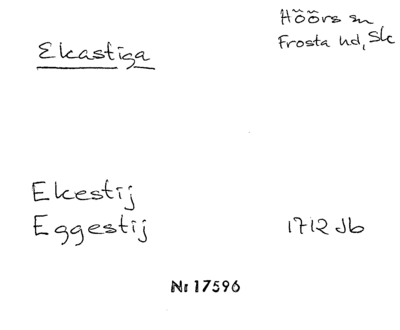 Ekastiga
Höörs sn
Frosta hd, Sk
Ekestij
Eggestij 1712 Jb
Nr 17596